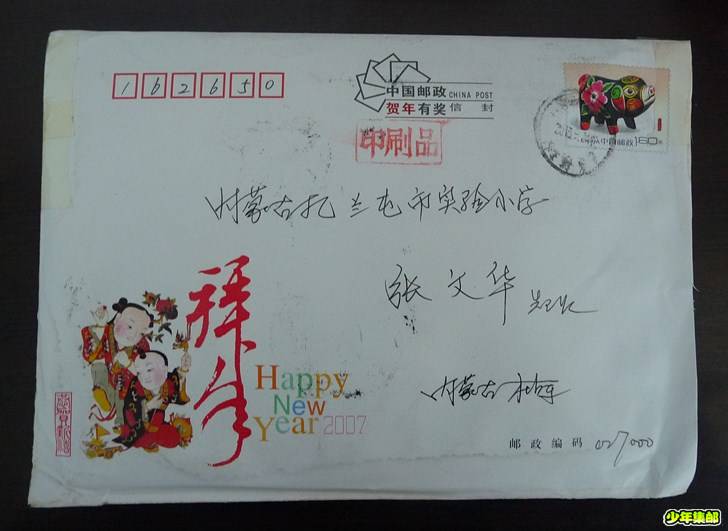 162650
中国邮政 CHINA POST
贺年有奖 信封
印刷品
中国邮政 160分
内蒙古扎兰屯市实验小学
张文华
拜年
Happy
New
Year 2007
内蒙古
邮政编码 027000
少年集邮